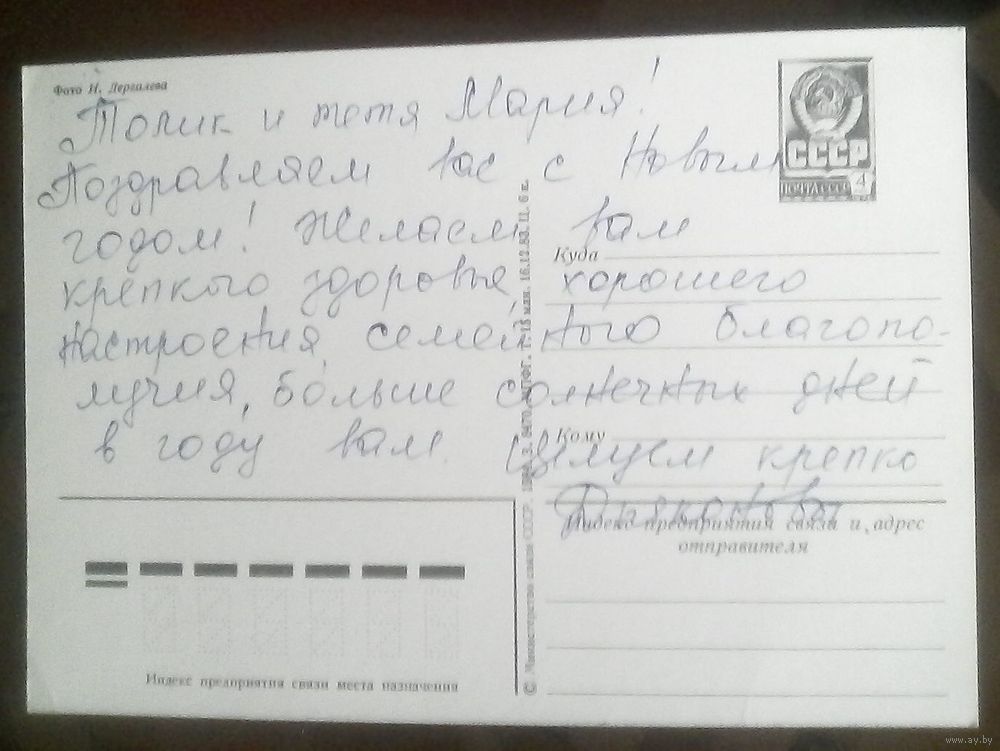 Фото И. Дергилева
Толик и тетя Мария!
Поздравляем вас с Новым
годом! Желаем вам
крепкого здоровья, хорошего
настроения, семейного благопо-
лучия, больше солнечных дней
в году вам. Целуем крепко
Дьяконовы
СССР
ПОЧТА СССР 4
Куда
Кому
Индекс предприятия связи и адрес
отправителя
Индекс предприятия связи места назначения
© Министерство связи СССР. 16.12.83. Ц. 6 к.
www.ay.by